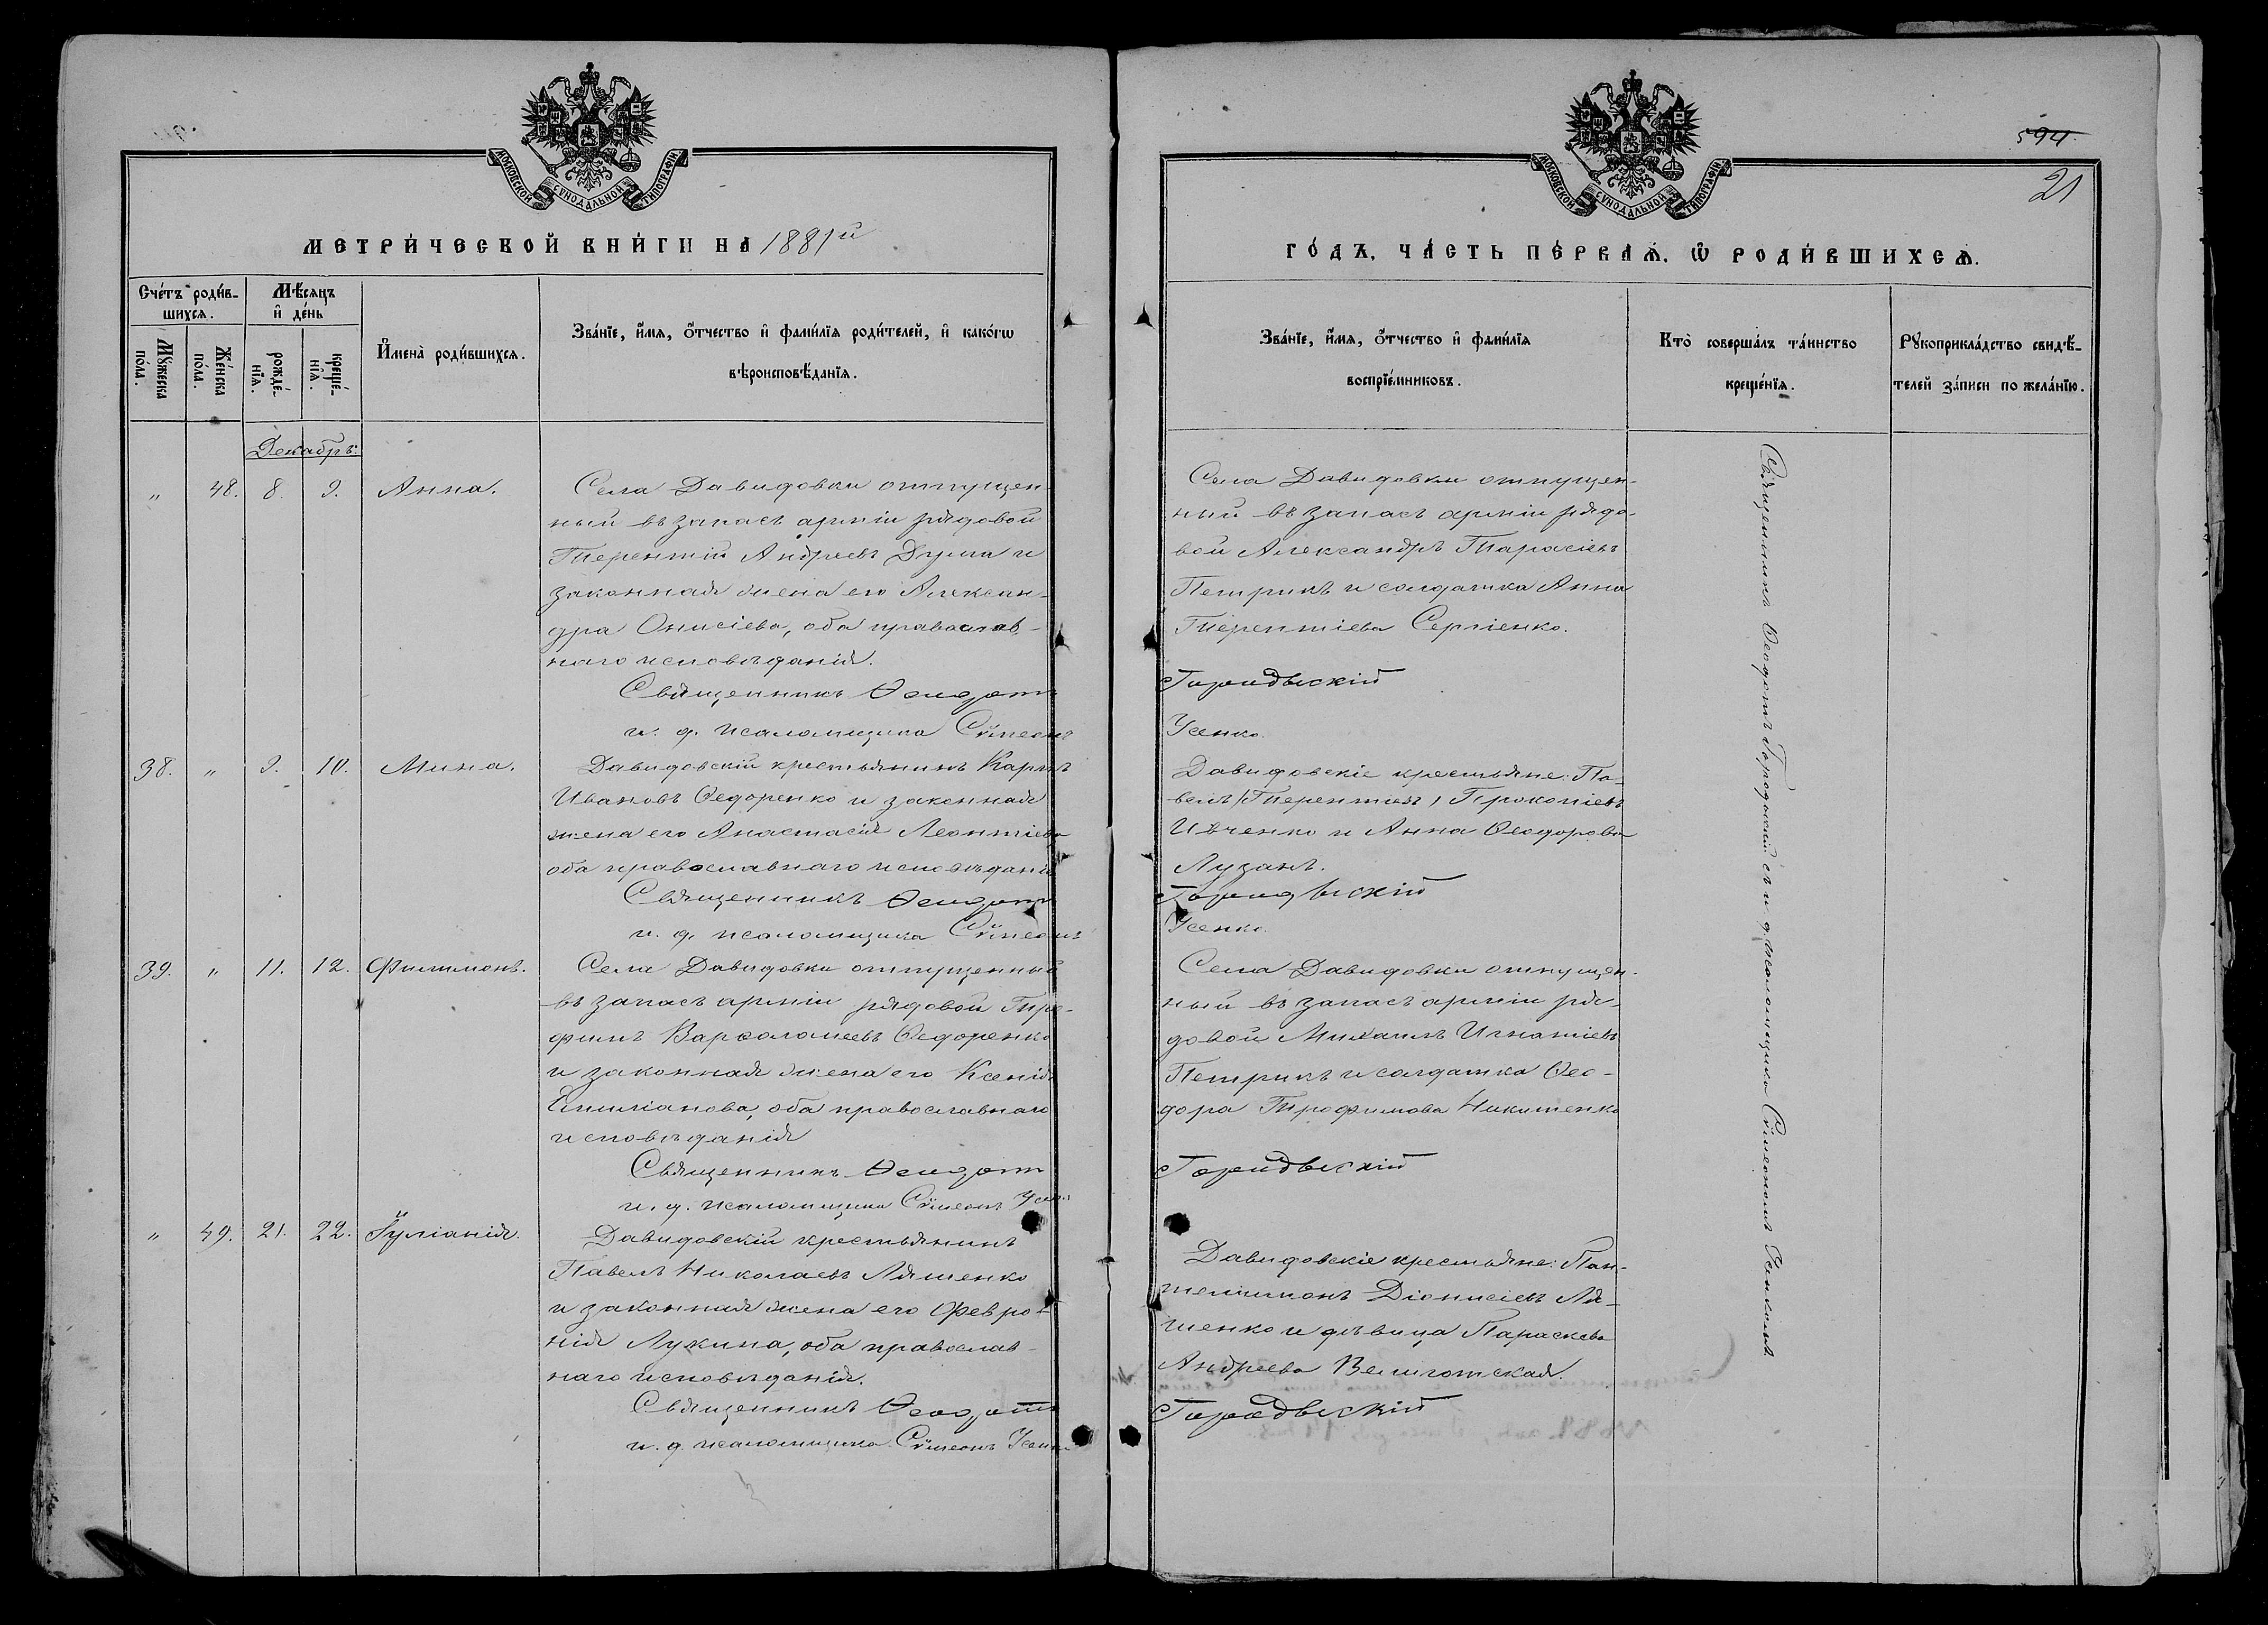 МОСКОВСКОЙ СУНОДАЛЬНОЙ ТИПОГРАФІИ
МЕТРИ́ЧЕСКОЙ КНИ́ГИ НА 1881й
Сче́тъ роди́в-
шихся.
Мѣ́сяцъ
и҆ де́нь
Мꙋ́жеска
по́ла.
Же́нска
по́ла.
рожде́-
нїѧ.
креще́-
нїѧ.
И҆мена̀ роди́вшихся.
Зва́нїе, и҆́мѧ, ѻ҆́тчество и҆ фами́лїѧ роди́телей, и҆ како́гѡ
вѣроисповѣ́данїѧ.
Декабрь:
„ 48. 8. 9. Анна.
Села Давидовки отпущен-
ный въ запасъ арміи рядовой
Терентій Андреевъ Дума и
законная жена его Алексан-
дра Онисіева, оба православ-
наго исповѣданія.
Священникъ Ѳеодотъ
и. д. псаломщика Сѵмеонъ
38. „ 9. 10. Мина.
Давидовскій крестьянинъ Карпъ
Ивановъ Ѳедоренко и законная
жена его Анастасія Леонтіева
оба православнаго исповѣданія
Священникъ Ѳеодотъ
и. д. псаломщика Сѵмеонъ
39. „ 11. 12. Филимонъ.
Села Давидовки отпущенный
въ запасъ арміи рядовой Тро-
фимъ Варѳоломеевъ Ѳедоренко
и законная жена его Ксенія
Емиліанова, оба православнаго
исповѣданія
Священникъ Ѳеодотъ
и. д. псаломщика Сѵмеонъ Усен:
„ 49. 21. 22. Іуліанія.
Давидовскій крестьянинъ
Павелъ Николаевъ Ляшенко
и законная жена его Февро-
нія Лукина, оба православ-
наго исповѣданія.
Священникъ Ѳеодотъ
и. д. псаломщика Сѵмеонъ Усенко
МОСКОВСКОЙ СУНОДАЛЬНОЙ ТИПОГРАФІИ
594
21
ГО́ДЪ, ЧА́СТЬ ПЕ́РВАѦ, Ѡ҆ РОДИ́ВШИХСѦ.
Зва́нїе, и҆́мѧ, ѻ҆́тчество и҆ фами́лїѧ
воспрїе́мниковъ.
Кто̀ соверша́лъ та́инство
креще́нїѧ.
Рꙋкоприкла́дство свидѣ́-
телей за́писи по жела́нїю.
Села Давидовки отпущен-
ный въ запасъ арміи рядо-
вой Александръ Тарасіевъ
Петрикъ и солдатка Анна
Терентіева Сергіенко.
Городыскій
Усенко.
Давидовскіе крестьяне: Па-
велъ (Терентій) Прокопіевъ
Ивченко и Анна Ѳеодорова
Лузанъ.
Городыскій
Усенко.
Села Давидовки отпущен-
ный въ запасъ арміи ря-
довой Михаилъ Игнатіевъ
Петрикъ и солдатка Ѳео-
дора Трофимова Никитенко
Городыскій
Давидовскіе крестьяне: Пан-
телеимонъ Діонисіевъ Ля-
шенко и дѣвица Параскева
Андреева Велиготская.
Городыскій
Священникъ Ѳеодотъ Городыскій съ и. д. псаломщика Сѵмеономъ Усенкомъ.